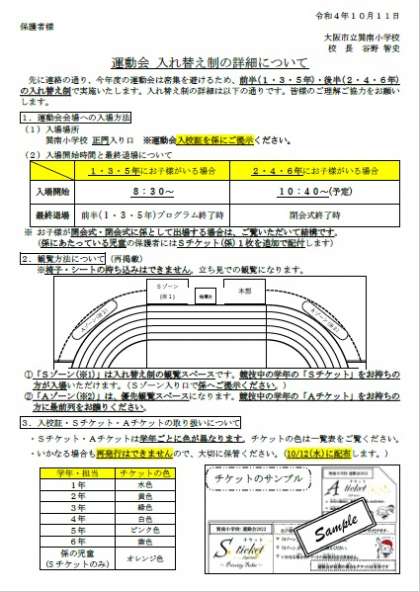 令和４年１０月１１日
保護者様
大阪市立巽南小学校
校 長 谷野 智史
運動会 入れ替え制の詳細について
先に連絡の通り、今年度の運動会は密集を避けるため、前半（１・３・５年）・後半（２・４・６年）
の入れ替え制で実施いたします。入れ替え制の詳細は以下の通りです。皆様のご理解ご協力をお願い
します。
１．運動会会場への入場方法
（１）入場場所
巽南小学校 正門入り口 ※運動会入校証を係にご提示ください。
（２）入場開始時間と最終退場について
１・３・５年にお子様がいる場合
２・４・６年にお子様がいる場合
入場開始
８：３０～
１０：４０～(予定)
最終退場
前半(１・３・５年)プログラム終了時
閉会式終了時
※ お子様が開会式・閉会式に係として出場する場合は、ご覧いただいて結構です。
（係にあたっている児童の保護者にはＳチケット(係)１枚を追加で配付します）
２．観覧方法について（再掲載）
※椅子・シートの持ち込みはできません。立ち見での観覧になります。
Ｓゾーン
（※１）
本部
Ａゾーン(※２)
Ａゾーン(※２)
①「Ｓゾーン(※1)」は入れ替え制の観覧スペースです。競技中の学年の「Ｓチケット」をお持ちの
方が入場いただけます。（Ｓゾーン入り口で係へご提示ください。）
②「Ａゾーン(※2)」は、優先観覧スペースになります。競技中の学年の「Ａチケット」をお持ちの
方に最前列をお譲りください。
３．入校証・Ｓチケット・Ａチケットの取り扱いについて
・Ｓチケット・Ａチケットは学年ごとに色が異なります。チケットの色は一覧表をご覧ください。
・いかなる場合も再発行はできませんので、大切に保管ください。（10/12(水)に配布します。）
学年・担当
チケットの色
１年
水色
２年
黄色
３年
緑色
４年
白色
５年
ピンク色
６年
紫色
係の児童
（Ｓチケットのみ）
オレンジ色
チケットのサンプル
巽南小学校 運動会2022
A チケット
ticket
Sample
巽南小学校 運動会2022
S チケット
ticket